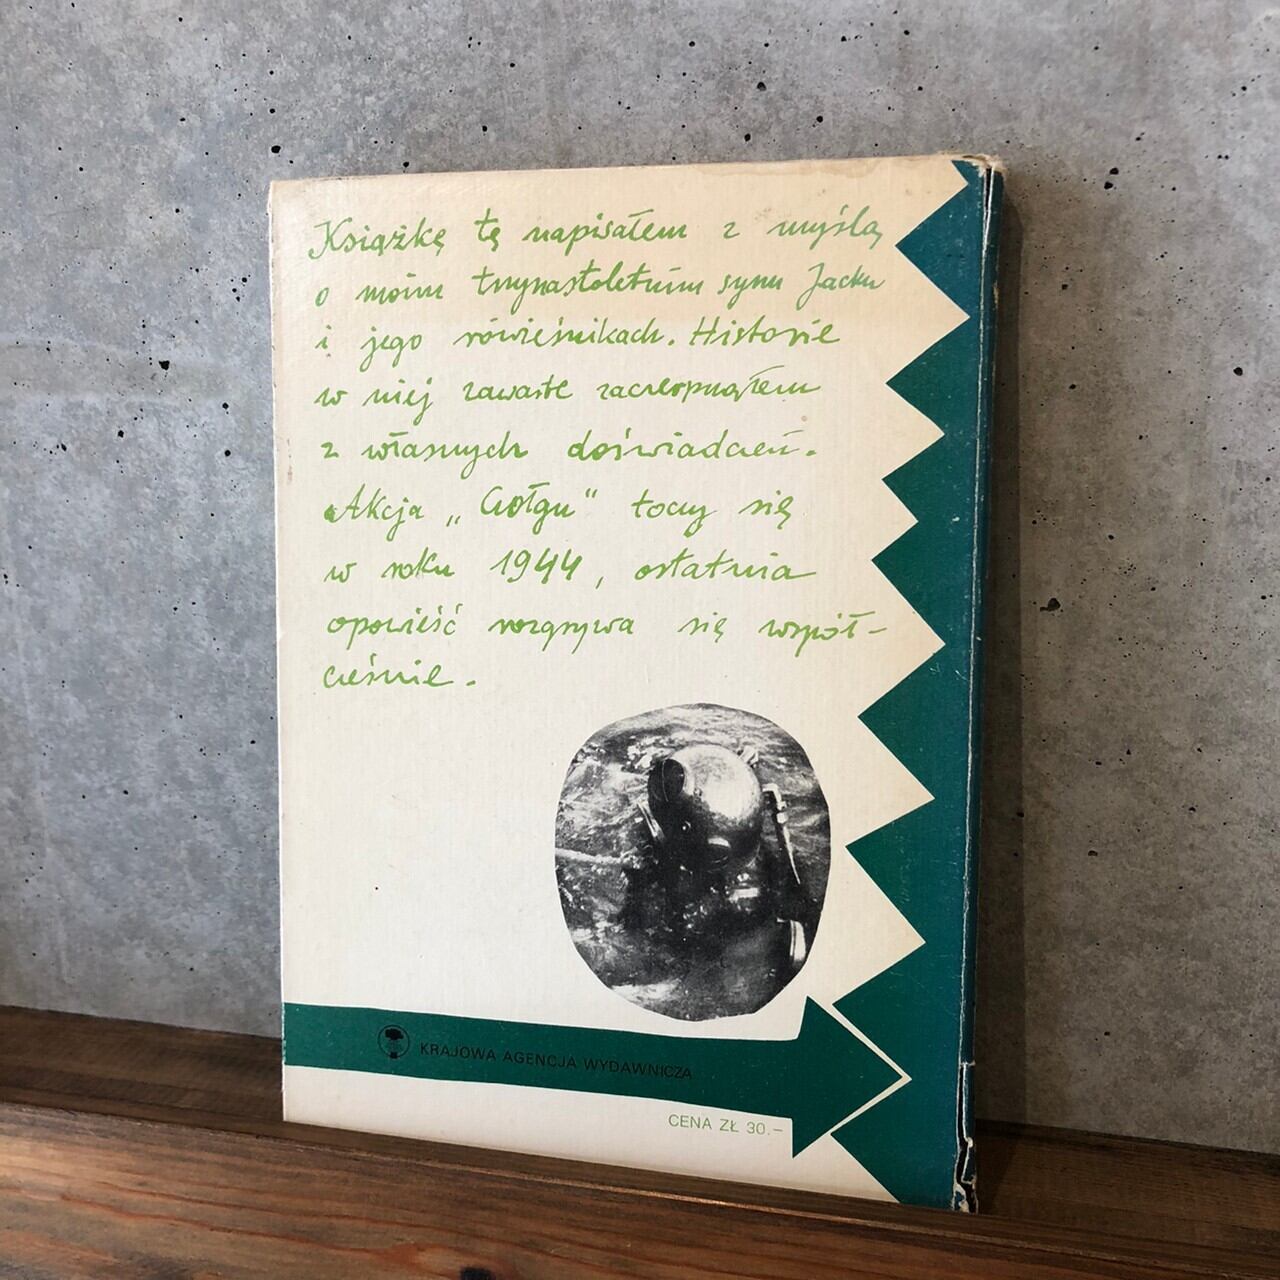 Książkę tę napisałem z myślą
o moim trzynastoletnim synu Jacku
i jego rówieśnikach. Historie
w niej zawarte zaczerpnąłem
z własnych doświadczeń.
Akcja „Gołgu" toczy się
w roku 1944, ostatnia
opowieść rozgrywa się współ-
cześnie.
KRAJOWA AGENCJA WYDAWNICZA
CENA ZŁ 30.-